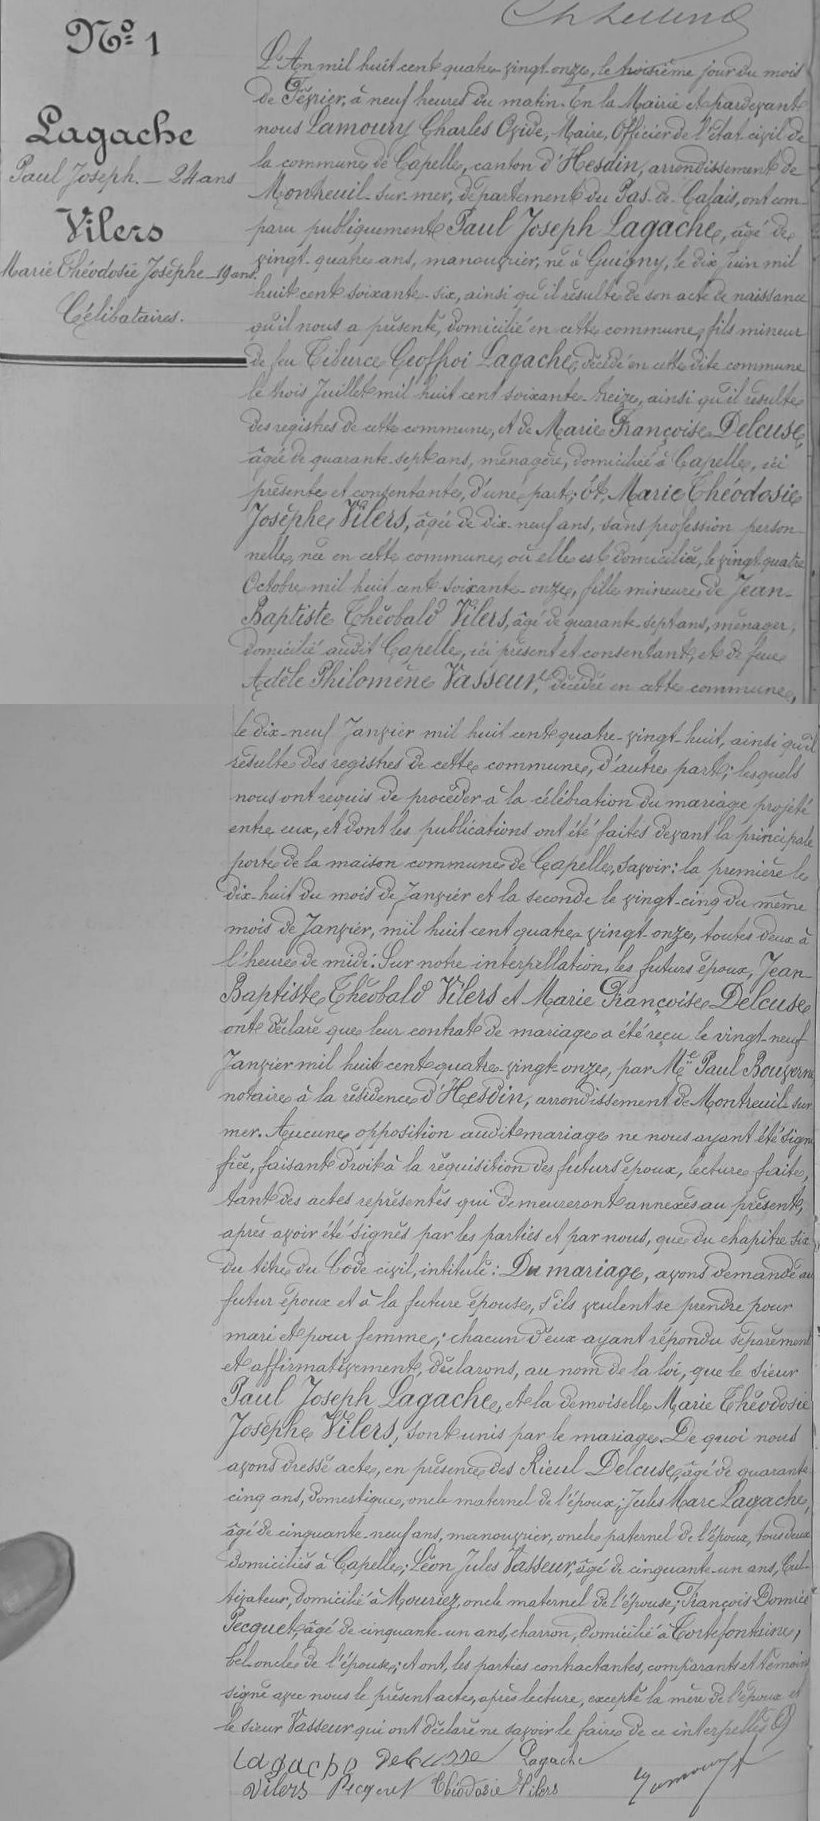 Nº 1
Lagache
Paul Joseph. — 24 ans
Vilers
Marie Théodosie Josèphe — 19 ans.
Célibataires.
L'An mil huit cent quatre-vingt-onze, le troisième jour du mois
de Février, à neuf heures du matin. En la Mairie et pardevant
nous Lamoury Charles Ovide, Maire, Officier de l'état civil de
la commune de Capelle, canton d'Hesdin, arrondissement de
Montreuil-sur-mer, département du Pas-de-Calais, ont com-
paru publiquement Paul Joseph Lagache, âgé de
vingt-quatre ans, manouvrier, né à Guigny, le dix Juin mil
huit cent soixante-six, ainsi qu'il résulte de son acte de naissance
qu'il nous a présenté, domicilié en cette commune, fils mineur
de feu Tiburce Geoffroi Lagache, décédé en cette dite commune
le trois Juillet mil huit cent soixante-treize, ainsi qu'il résulte
des registres de cette commune, et de Marie Françoise Delcuse,
âgée de quarante-sept ans, ménagère, domiciliée à Capelle, ici
présente et consentante, d'une part; et, Marie Théodosie
Josèphe Vilers, âgée de dix-neuf ans, sans profession person-
nelle, née en cette commune, où elle est domiciliée, le vingt-quatre
Octobre mil huit cent soixante-onze, fille mineure de Jean-
Baptiste Théobald Vilers, âgé de quarante-sept ans, ménager,
domicilié audit Capelle, ici présent et consentant, et de feue
Adèle Philomène Vasseur, décédée en cette commune,
le dix-neuf Janvier mil huit cent quatre-vingt-huit, ainsi qu'il
résulte des registres de cette commune, d'autre part; lesquels
nous ont requis de procéder à la célébration du mariage projeté
entre eux, et dont les publications ont été faites devant la principale
porte de la maison commune de Capelle, savoir: la première le
dix-huit du mois de Janvier et la seconde le vingt-cinq du même
mois de Janvier, mil huit cent quatre-vingt-onze, toutes deux à
l'heure de midi. Sur notre interpellation, les futurs époux, Jean-
Baptiste Théobald Vilers et Marie Françoise Delcuse
ont déclaré que leur contrat de mariage a été reçu le vingt-neuf
Janvier mil huit cent quatre-vingt-onze, par Me Paul
notaire à la résidence d'Hesdin, arrondissement de Montreuil-sur-
mer. Aucune opposition audit mariage ne nous ayant été signi
fiée, faisant droit à la réquisition des futurs époux, lecture faite,
tant des actes représentés qui demeureront annexés au présent,
après avoir été signés par les parties et par nous, que du chapitre six
du titre du Code civil, intitulé: Du mariage, avons demandé au
futur époux et à la future épouse, s'ils veulent se prendre pour
mari et pour femme; chacun d'eux ayant répondu séparément
et affirmativement, déclarons, au nom de la loi, que le sieur
Paul Joseph Lagache, et la demoiselle Marie Théodosie
Josèphe Vilers, sont unis par le mariage. De quoi nous
avons dressé acte, en présence des Rieul Delcuse, âgé de quarante-
cinq ans, domestique, oncle maternel de l'époux; Jules Marc Lagache,
âgé de cinquante-neuf ans, manouvrier, oncle paternel de l'époux, tous deux
domiciliés à Capelle; Léon Jules Vasseur, âgé de cinquante-un ans, Cul-
tivateur, domicilié à Mouriez, oncle maternel de l'épouse; François Domice
Pecquet, âgé de cinquante-un ans, charron, domicilié à Tortefontaine,
bel-oncle de l'épouse; et ont, les parties contractantes, comparants et témoins
signé avec nous le présent acte, après lecture, excepté la mère de l'époux et
le sieur Vasseur qui ont déclaré ne savoir le faire de ce interpellés
Lagache Delcusse Lagache
Vilers Pecquet Théodosie Vilers Lamoury